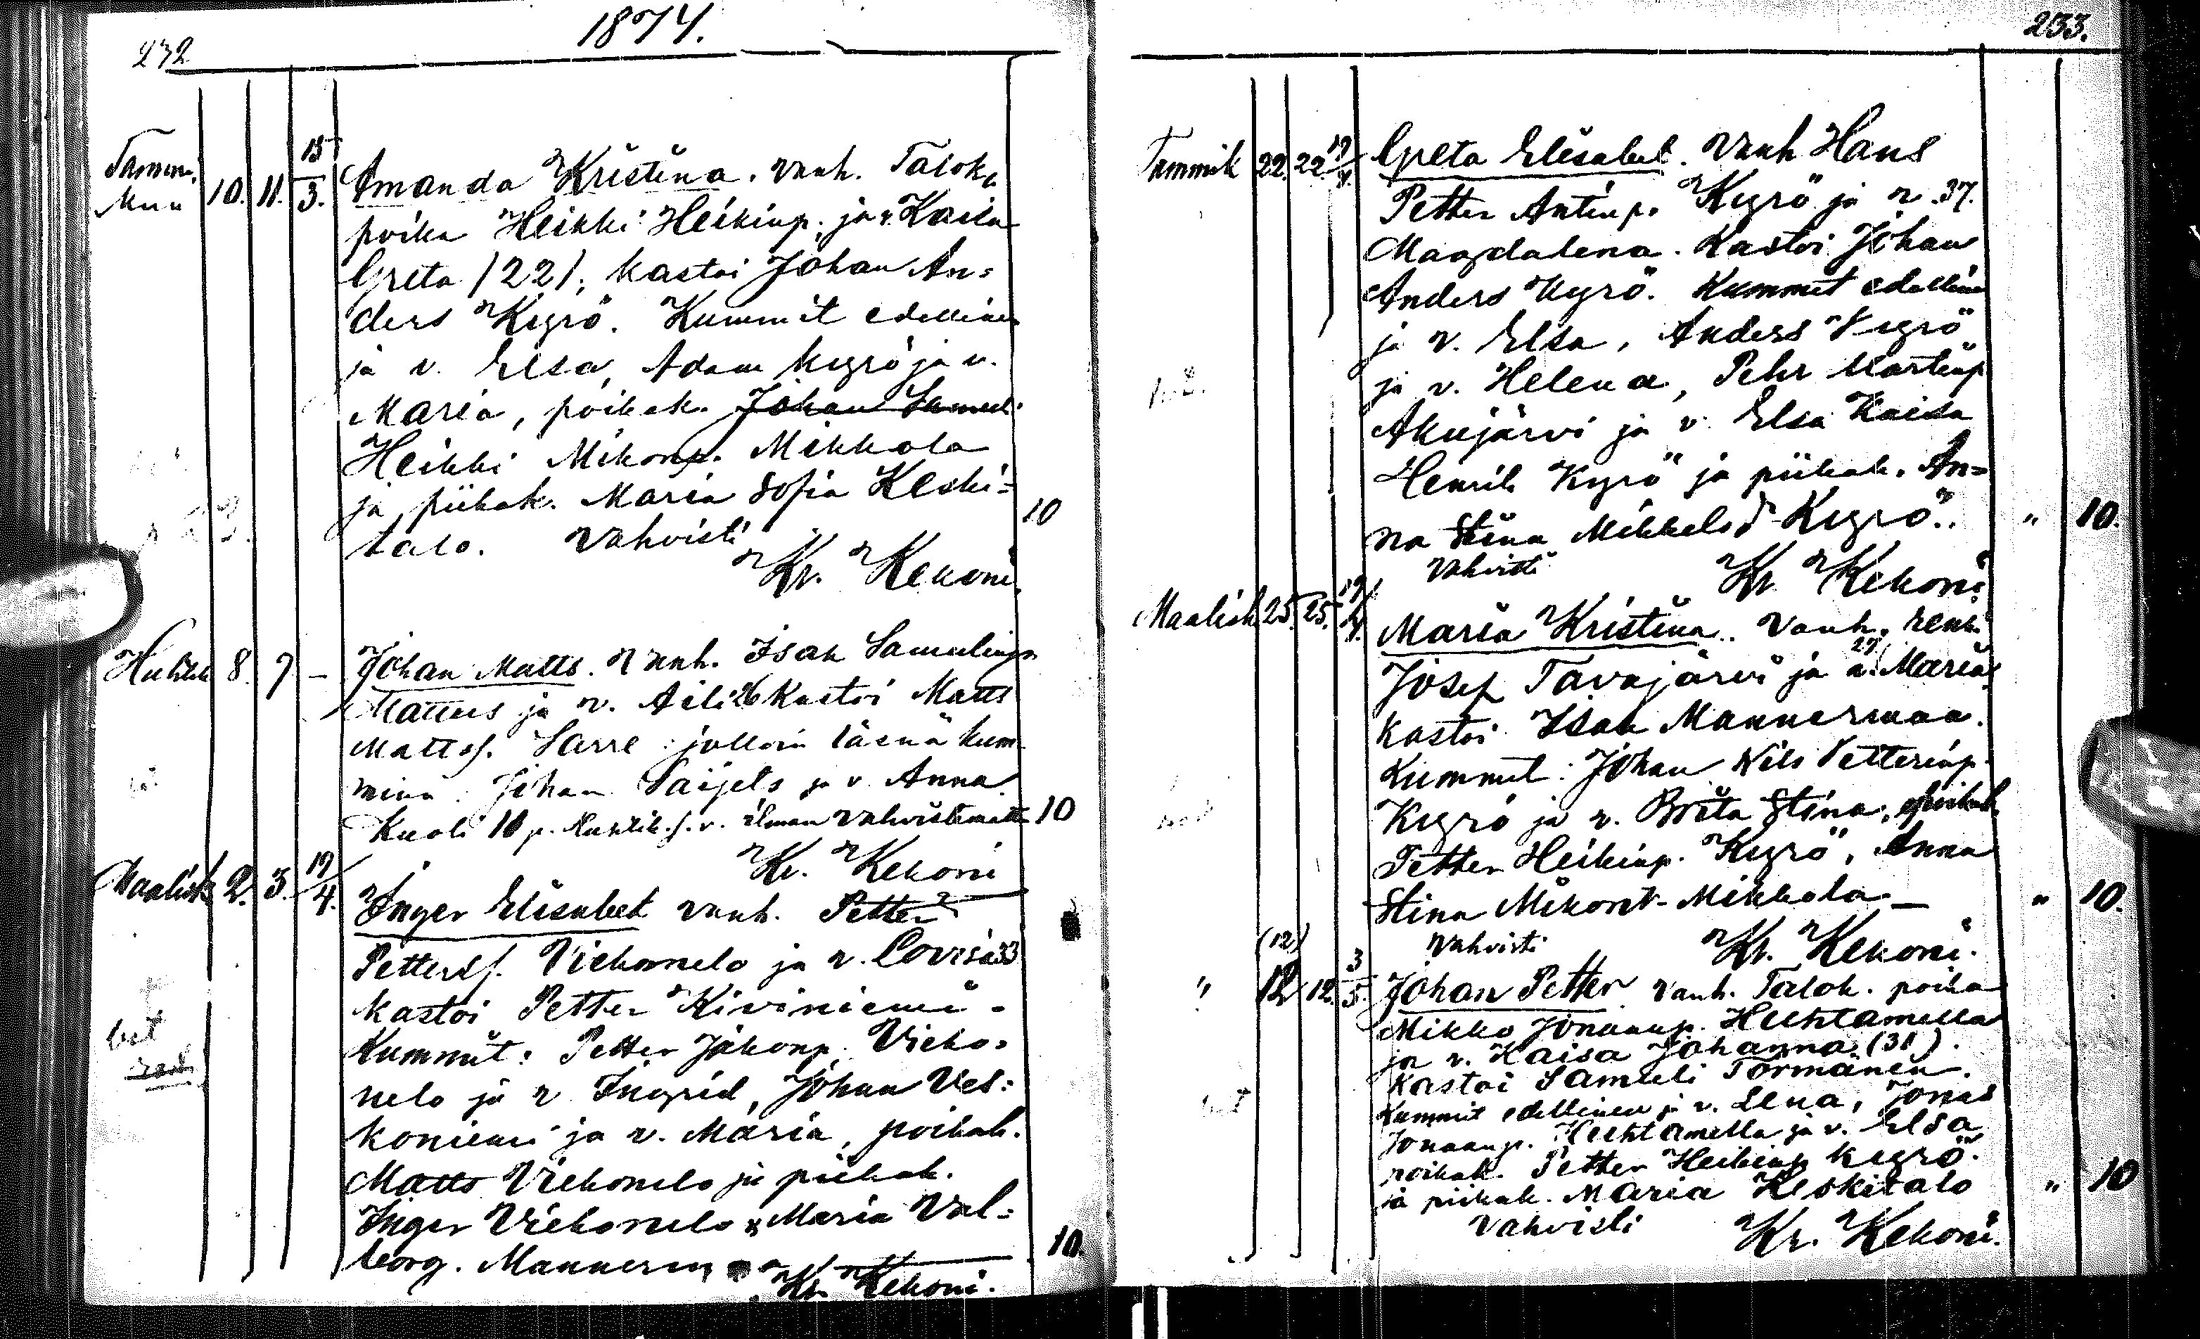 232
1874.
Tammi
kuu
10. 11. 15/3.
Amanda Kristina. vanh. Talok.
poika Heikki Heikinp. ja v. Kaisa
Greta (22), kastoi Johan An=
ders Kyrö. Kummit edellinen
ja v. Elsa, Adam Kyrö ja v.
Maria, poikak. Johan Samuel
Heikki Mikonp. Mikkola
ja piikak. Maria Sofia Keski=
talo. Vahvisti
10
Kr. Kekoni.
Huhtik 8. 9. –
Johan Matts. Vanh. Isak Samulinp.
Mattus ja v. Aili 26 Kastoi Matts
Mattsf. Sarre jolloin läsnä kum-
mina Johan Saijets ja v. Anna.
Kuoli 10 p. Huhtik. s. v. ilman vahvistamatta
10
Kr. Kekoni
Maalisk 2. 3. 19/4.
Inger Elisabet vanh. Petter
Pettersf. Viekonelo ja v. Lovisa 33
Kastoi Petter Kiviniemi -
Kummit: Petter Jakonp. Vieko=
nelo ja v Ingrid, Johan Ves=
koniemi ja v. Maria, poikak.
Matts Viekonelo ja piikak.
Inger Viekonelo & Maria Val=
borg. Mannerm
10.
Kr. Kekoni.
233.
Tammik 22. 22 19/4.
Greta Elisabet. Vanh Hans
Petter Antinp. Kyrö ja v. 37.
Magdalena. Kastoi Johan
Anders Kyrö. Kummit edellinen
ja v. Elsa, Anders Kyrö
ja v. Helena, Pehr Martinp
Akujärvi ja v. Elsa Kaisa
Henrik Kyrö ja piikak. An=
na Stina Mikkelsd Kyrö..
" 10.
Vahvisti
Kr Kekoni.
Maalisk 25. 25. 19/4.
Maria Kristina. Vanh. renki
Josef Tavajärvi ja v. 27 Maria.
Kastoi Isak Mannermaa.
Kummit: Johan Nils Petterinp.
Kyrö ja v. Brita Stina, poikak.
Petter Heikinp. Kyrö, Anna
Stina Mikont. Mikkola –
" 10.
Vahvisti
Kr. Kekoni.
(12)
" 12 12. 3/5.
Johan Petter vanh. Talok. poika
Mikko Jonaanp. Huhtamella
ja v. Kaisa Johanna (31).
Kastoi Samuli Törmänen.
Kummit edellinen ja v. Lena, Jonas
Jonaanp. Huhtamella ja v. Elsa
poikak. Petter Heikinp Kyrö.
ja piikak. Maria Keskitalo
" 10
Vahvisti
Kr. Kekoni.